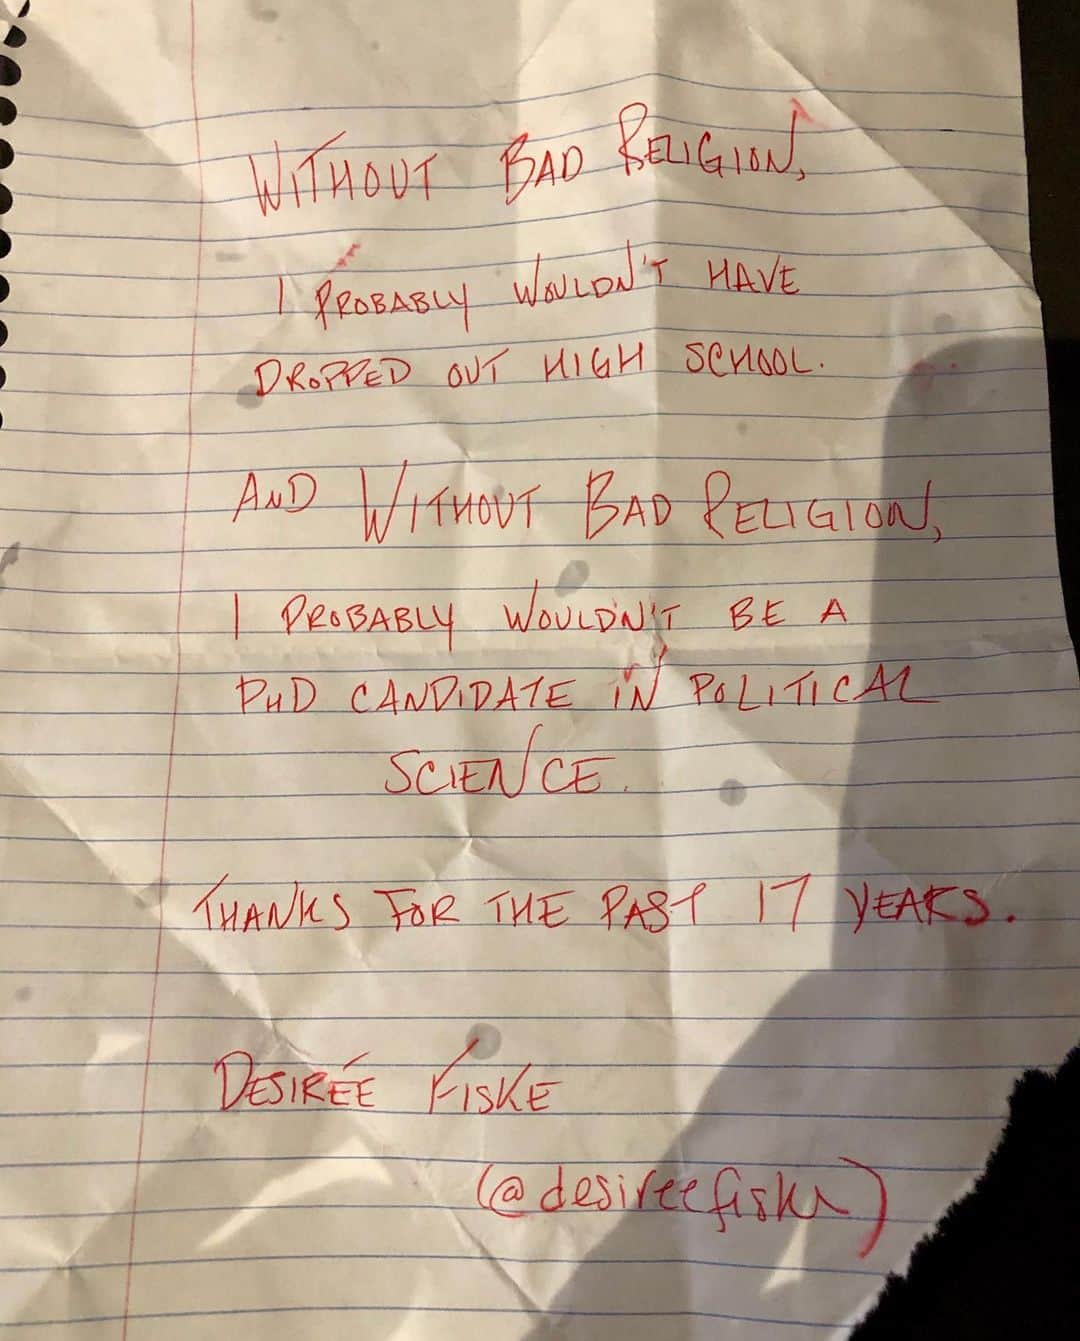 WITHOUT BAD RELIGION,
I PROBABLY WOULDN'T HAVE
DROPPED OUT HIGH SCHOOL.
AND WITHOUT BAD RELIGION,
I PROBABLY WOULDN'T BE A
PHD CANDIDATE IN POLITICAL
SCIENCE.
THANKS FOR THE PAST 17 YEARS.
DESIRÉE FISKE
(@desireefiske)